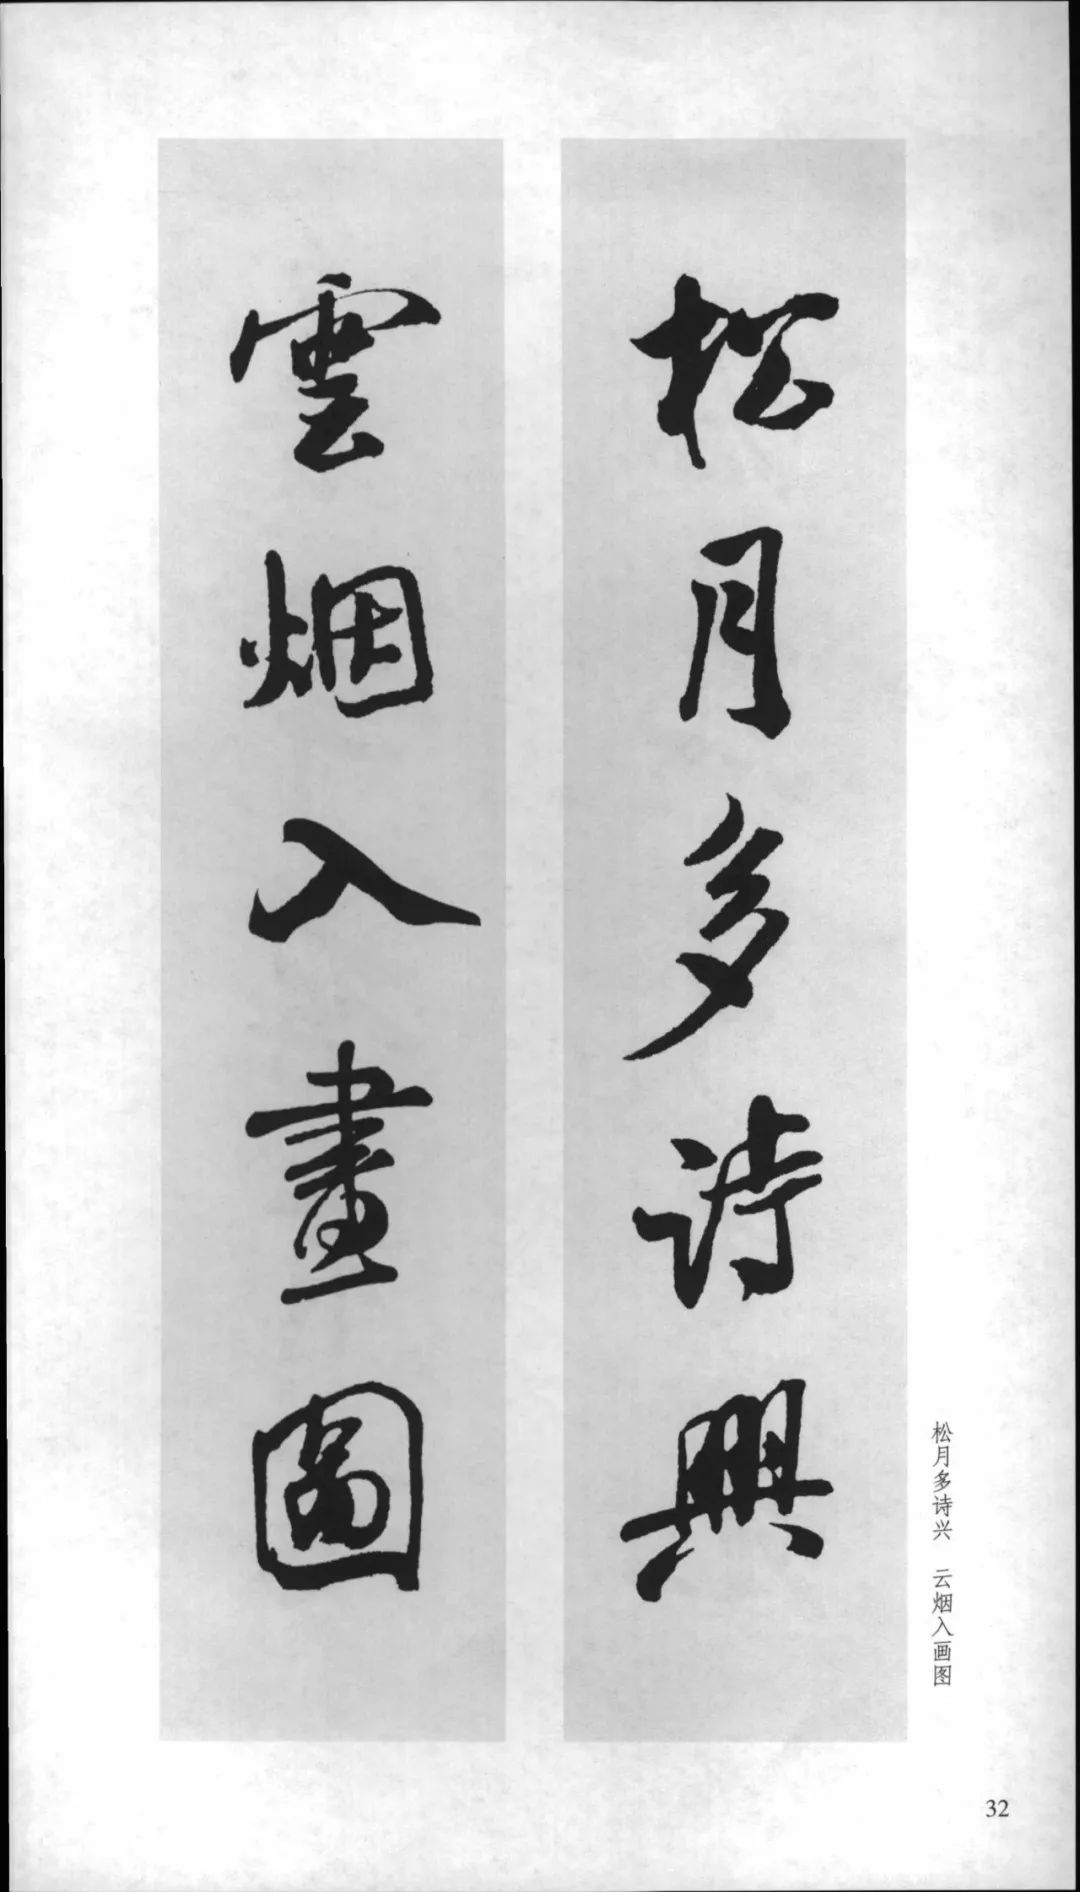 松月多詩興
雲烟入畫圖
松月多诗兴 云烟入画图
32